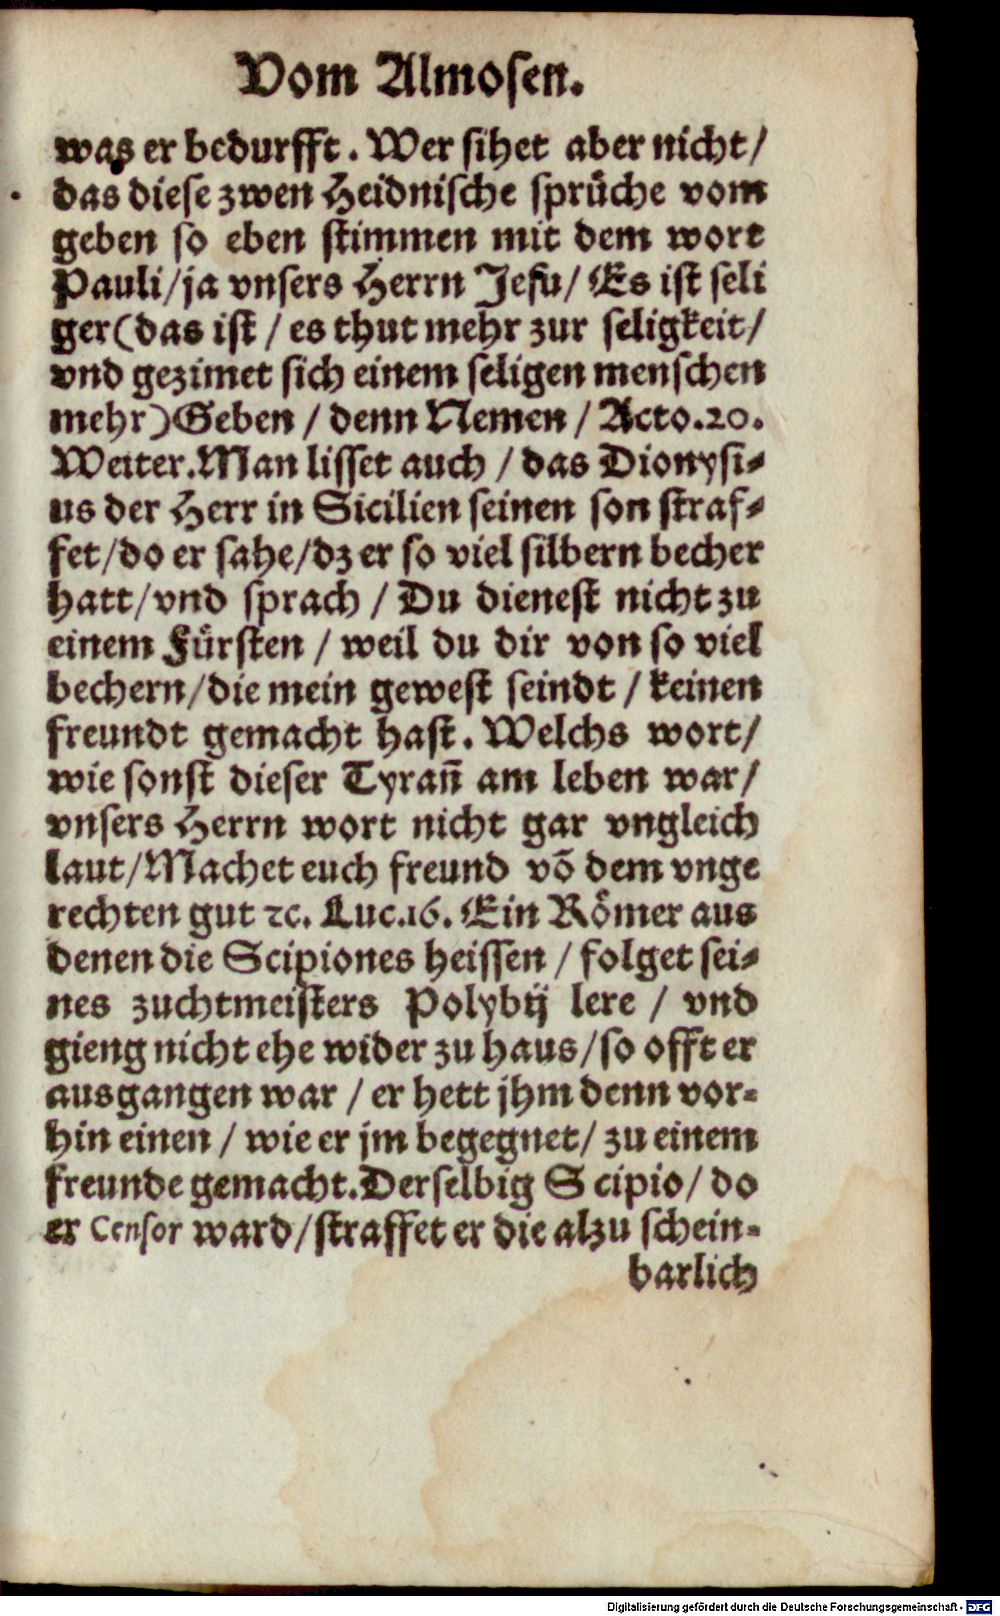 Vom Almosen.
was er bedurfft. Wer sihet aber nicht/
das diese zwen Heidnische sprüche vom
geben so eben stimmen mit dem wort
Pauli/ja vnsers Herrn Jesu/ Es ist seli
ger(das ist / es thut mehr zur seligkeit/
vnd gezimet sich einem seligen menschen
mehr)Geben / denn Nemen / Acto.20.
Weiter.Man lisset auch / das Dionysi-
us der Herr in Sicilien seinen son straf-
fet/do er sahe/dz er so viel silbern becher
hatt/vnd sprach / Du dienest nicht zu
einem Fürsten / weil du dir von so viel
bechern/die mein gewest seindt / keinen
freundt gemacht hast. Welchs wort/
wie sonst dieser Tyrañ am leben war/
vnsers Herrn wort nicht gar vngleich
laut/Machet euch freund võ dem vnge
rechten gut ꝛc. Luc.16. Ein Römer aus
denen die Scipiones heissen / folget sei-
nes zuchtmeisters Polybij lere / vnd
gieng nicht ehe wider zu haus/so offt er
ausgangen war / er hett jhm denn vor-
hin einen / wie er jm begegnet/ zu einem
freunde gemacht.Derselbig Scipio/ do
er Censor ward/straffet er die alzu schein-
barlich
Digitalisierung gefördert durch die Deutsche Forschungsgemeinschaft - DFG